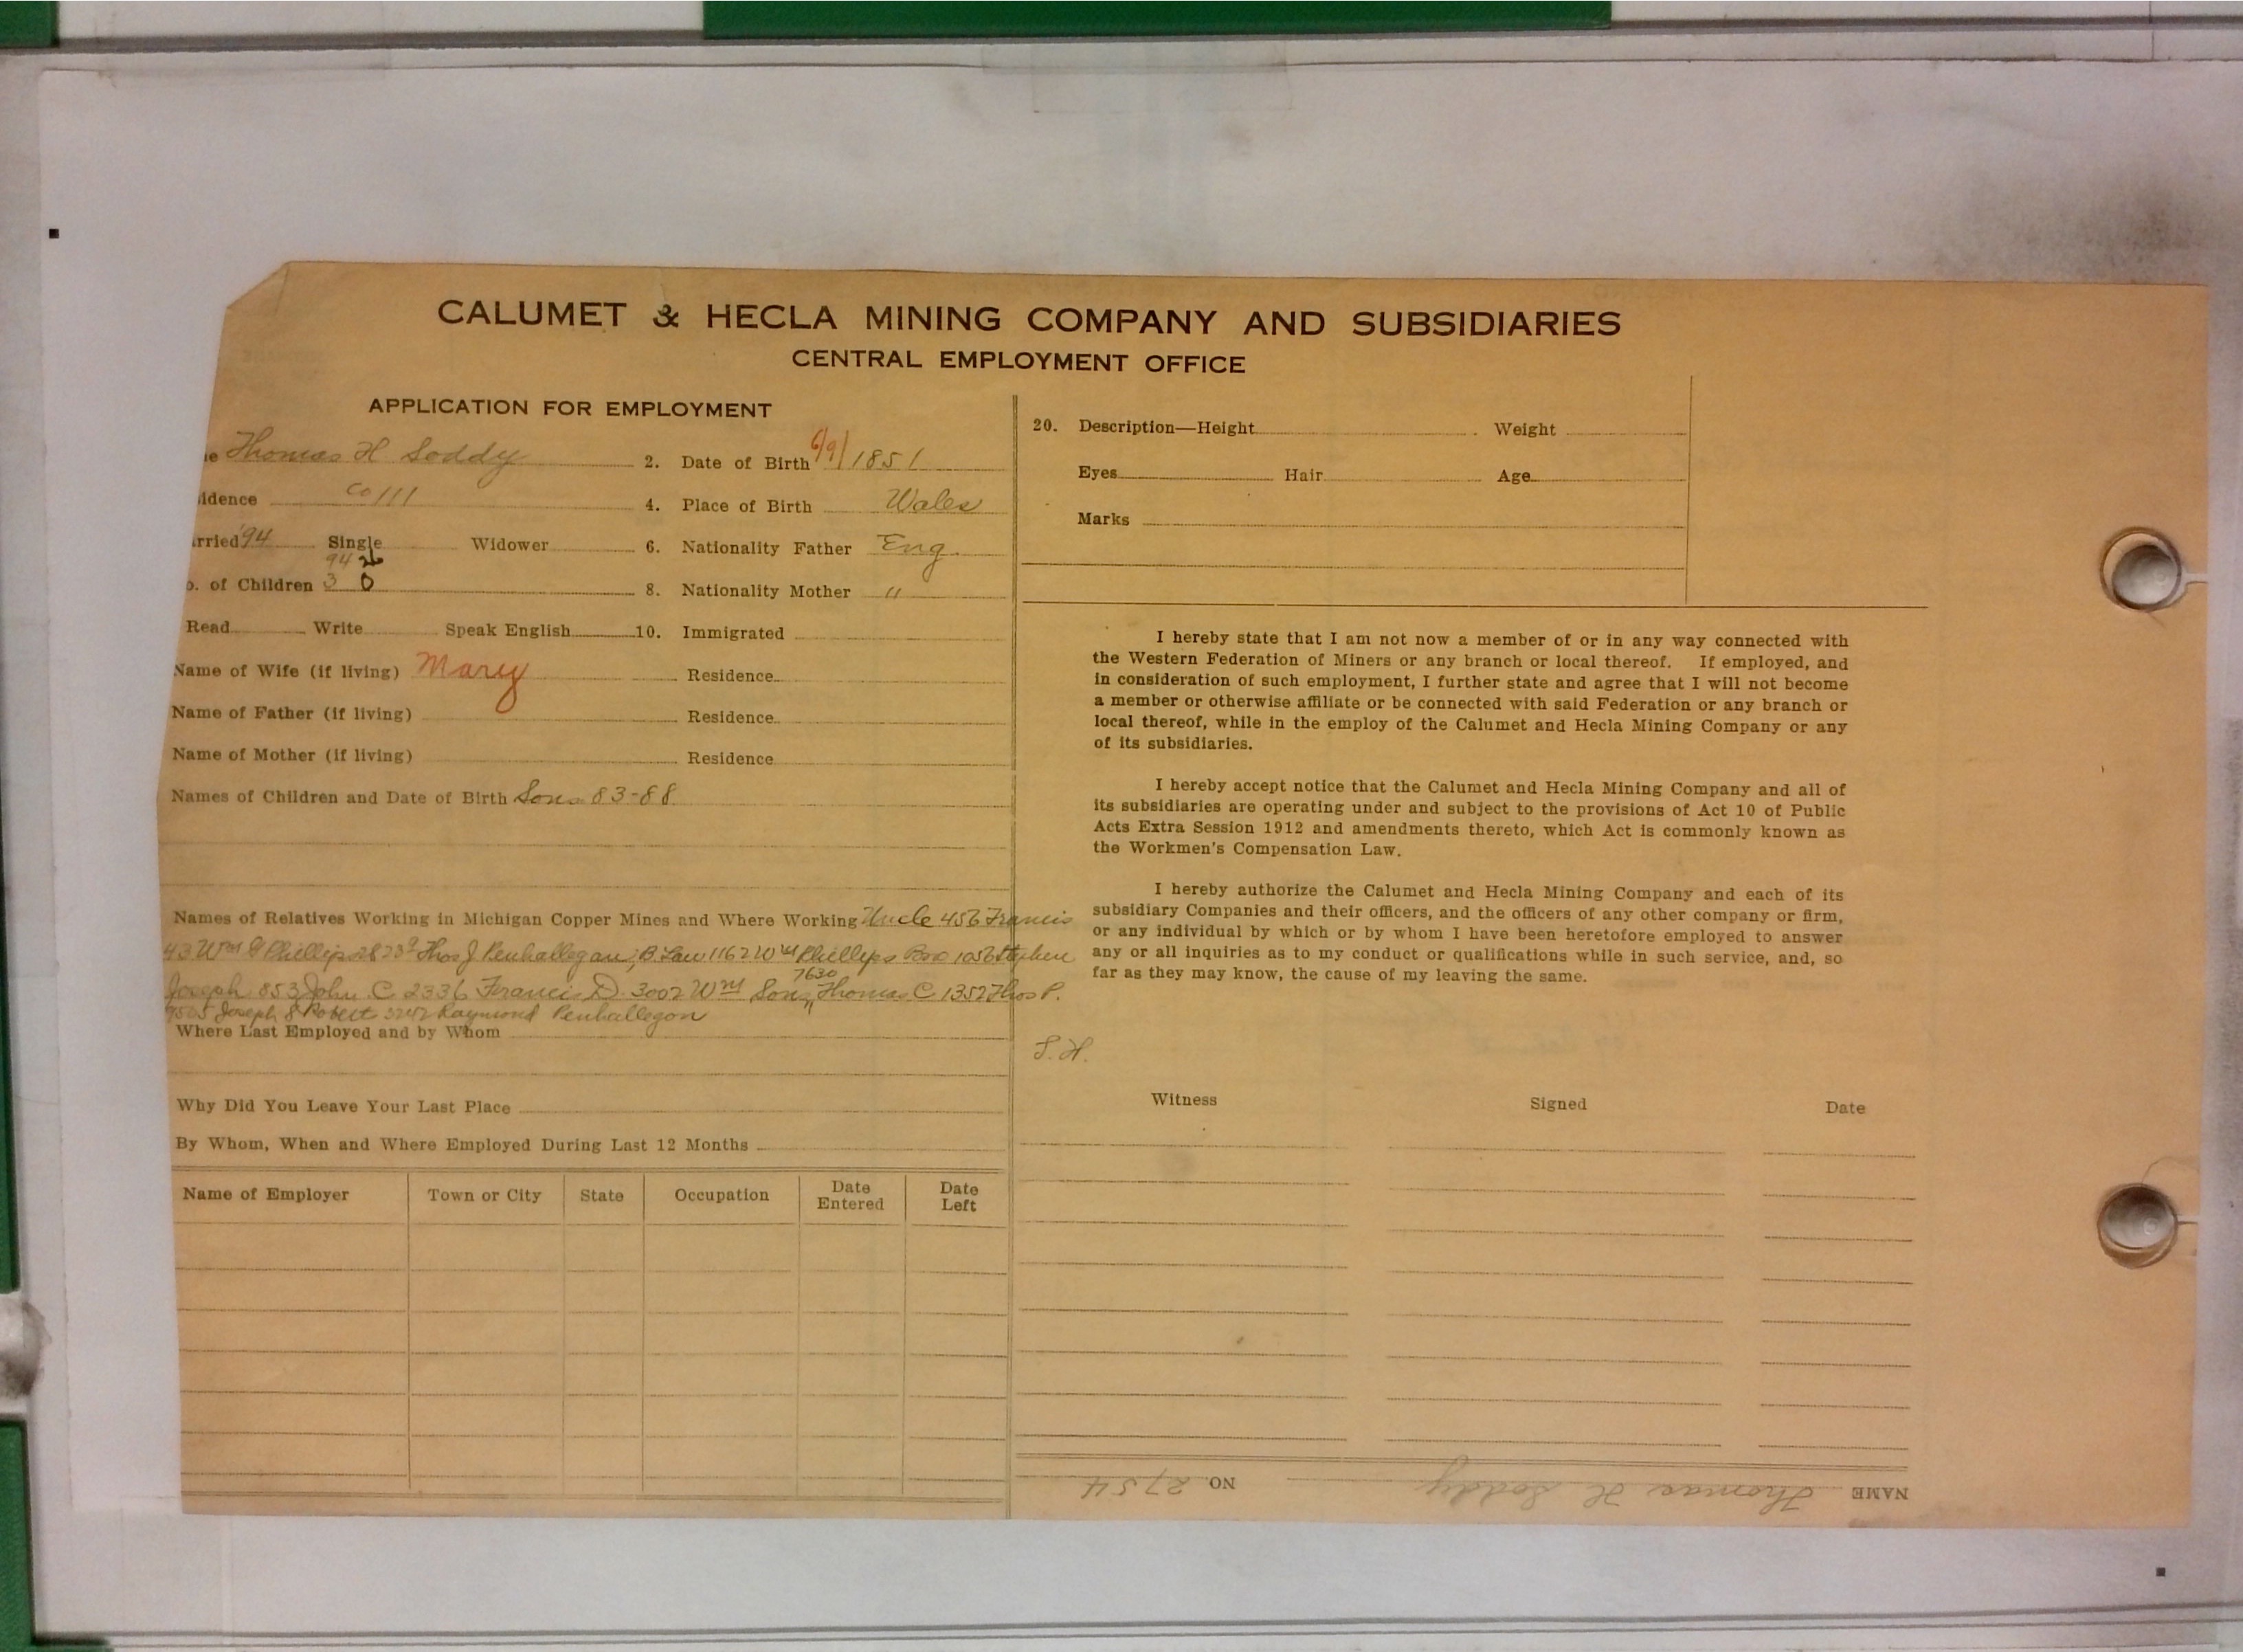 CALUMET & HECLA MINING COMPANY AND SUBSIDIARIES
CENTRAL EMPLOYMENT OFFICE
APPLICATION FOR EMPLOYMENT
e Thomas H Soddy 2. Date of Birth 6/9/1851
idence Co 111 4. Place of Birth Wales
rried '94 Single Widower 6. Nationality Father Eng.
94 26
o. of Children 3 0 8. Nationality Mother "
Read Write Speak English 10. Immigrated
Name of Wife (if living) Mary Residence
Name of Father (if living) Residence
Name of Mother (if living) Residence
Names of Children and Date of Birth Sons 83-88
Names of Relatives Working in Michigan Copper Mines and Where Working Uncle 456 Francis
43 Wm Phillips Thos J Penhallegan, B Law 1162 Wm Phillips Bro 1056 Stephen
7630
Joseph 853 John C 2336 Francis D. 3002 Wm Sons " Thomas C 1352 Thos P.
9505 Joseph S Robert Raymond Penhallegon
Where Last Employed and by Whom
Why Did You Leave Your Last Place
By Whom, When and Where Employed During Last 12 Months
Name of Employer Town or City State Occupation Date Entered Date Left
20. Description—Height Weight
Eyes Hair Age
Marks
I hereby state that I am not now a member of or in any way connected with
the Western Federation of Miners or any branch or local thereof. If employed, and
in consideration of such employment, I further state and agree that I will not become
a member or otherwise affiliate or be connected with said Federation or any branch or
local thereof, while in the employ of the Calumet and Hecla Mining Company or any
of its subsidiaries.
I hereby accept notice that the Calumet and Hecla Mining Company and all of
its subsidiaries are operating under and subject to the provisions of Act 10 of Public
Acts Extra Session 1912 and amendments thereto, which Act is commonly known as
the Workmen's Compensation Law.
I hereby authorize the Calumet and Hecla Mining Company and each of its
subsidiary Companies and their officers, and the officers of any other company or firm,
or any individual by which or by whom I have been heretofore employed to answer
any or all inquiries as to my conduct or qualifications while in such service, and, so
far as they may know, the cause of my leaving the same.
S. H.
Witness Signed Date
NAME Thomas H Soddy NO. 2754